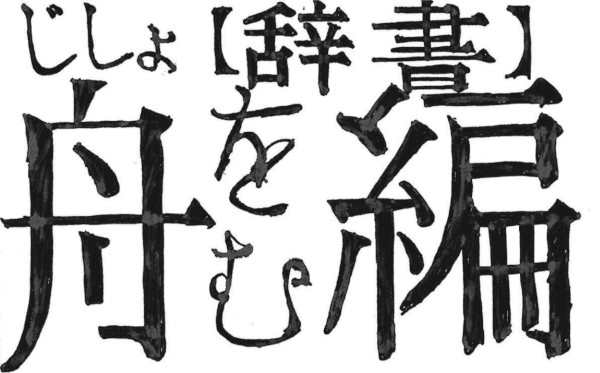 じしょ【辞書】
舟を編む